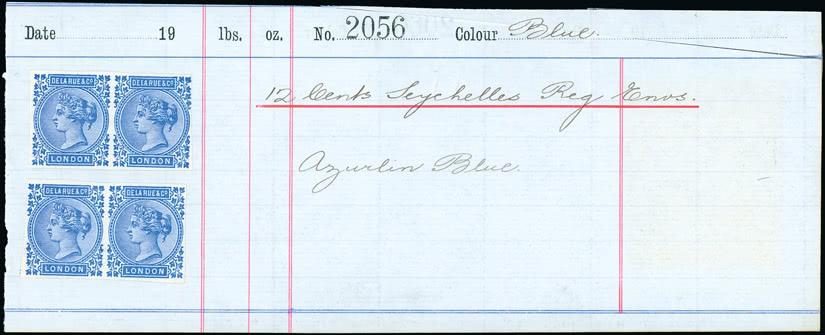 Date 19 lbs. oz. No. 2056 Colour Blue.
DE LA RUE & Co. DE LA RUE & Co.
LONDON LONDON
12 Cents Seychelles Reg Envs.
Azurlin Blue.
DE LA RUE & Co. DE LA RUE & Co.
LONDON LONDON